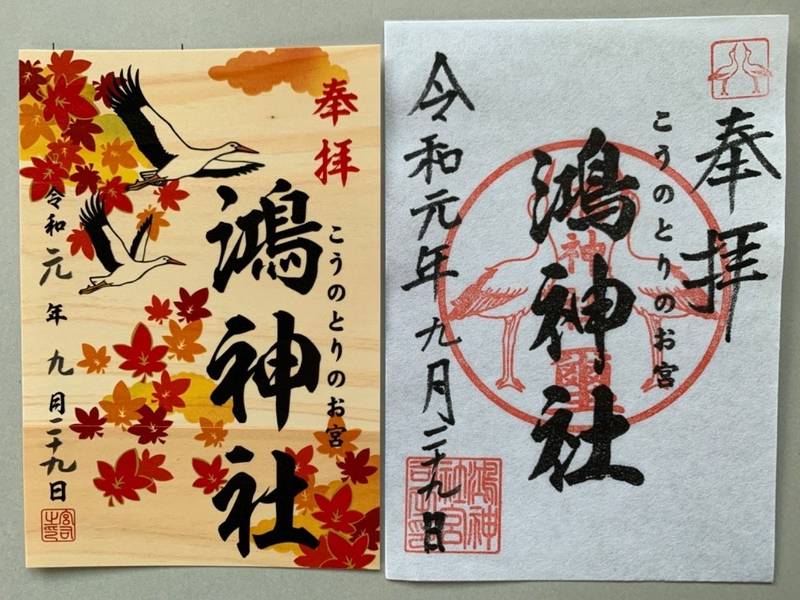 奉拝
こうのとりのお宮
鴻神社
令和元年九月二十九日
奉拝
こうのとりのお宮
鴻神社
令和元年九月二十九日